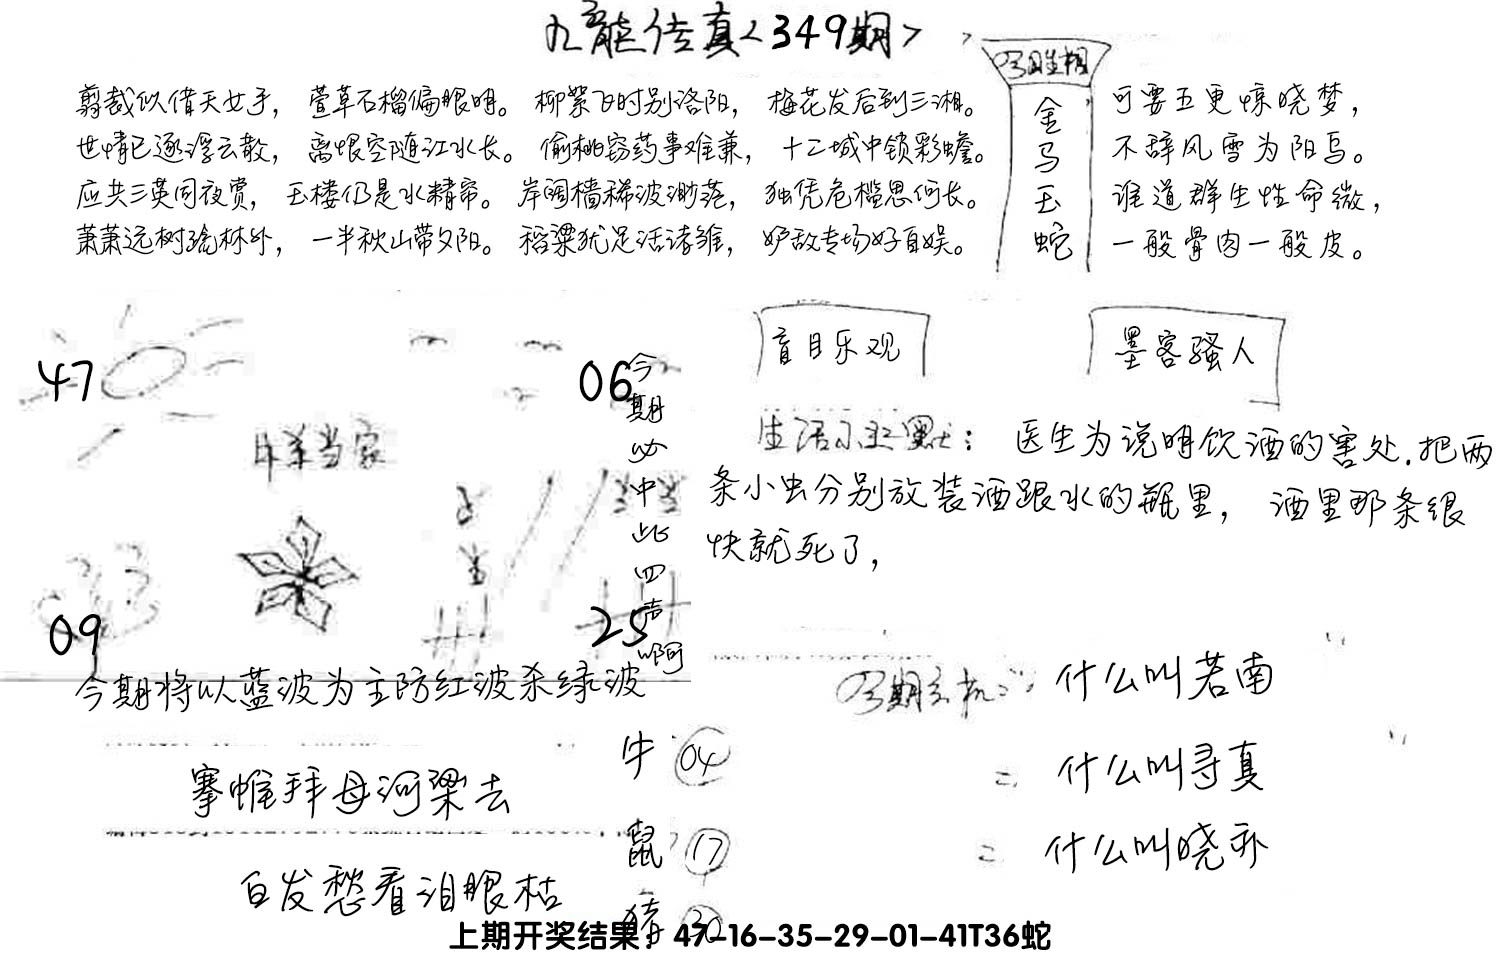 九龙传真<349期>
剪裁似借天女手，萱草石榴偏眼明。柳絮飞时别洛阳，梅花发后到三湘。
世情已逐浮云散，离恨空随江水长。偷桃窃药事难兼，十二城中锁彩蟾。
应共三英同夜赏，玉楼仍是水精帘。岸阔樯稀波渺茫，独凭危槛思何长。
萧萧远树疏林外，一半秋山带夕阳。稻粱犹足活诸雏，妒敌专场好自娱。
今日生相
金
马
玉
蛇
可要五更惊晓梦，
不辞风雪为阳乌。
谁道群生性命微，
一般骨肉一般皮。
47
06
今期必中此四肖啊
当家
09
25
今期将以蓝波为主防红波杀绿波
盲目乐观
墨客骚人
生活小幽默：医生为说明饮酒的害处.把两
条小虫分别放装酒跟水的瓶里，酒里那条很
快就死了，
今期玄机：什么叫若南
什么叫寻真
什么叫晓亦
搴帷拜母河梁去
白发愁看泪眼枯
牛 04
鼠 17
猪 30
上期开奖结果：47-16-35-29-01-41T36蛇